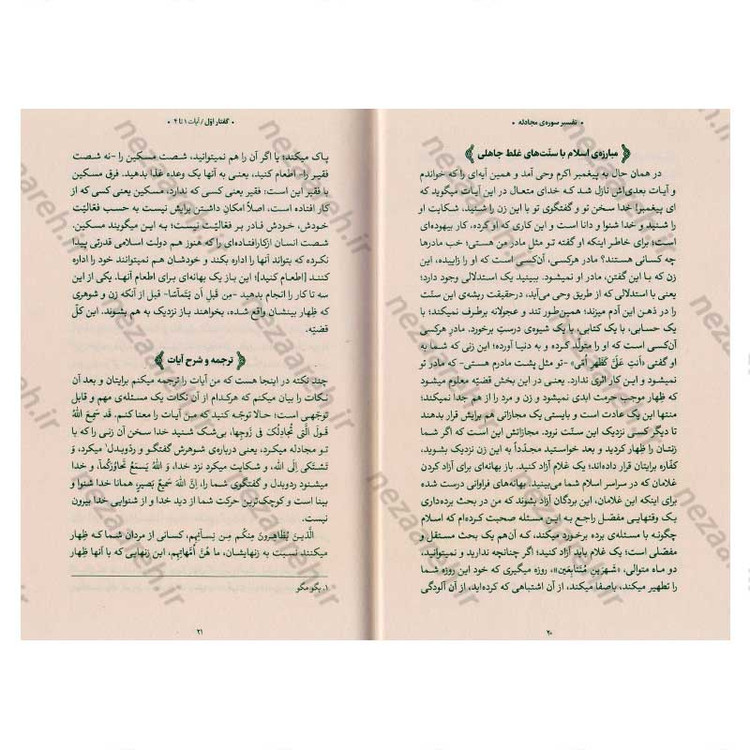 • تفسیر سوره‌ی مجادله •
مبارزه‌ی اسلام با سنّت‌های غلط جاهلی
در همان حال به پیغمبر اکرم وحی آمد و همین آیه‌ای را که خواندم
و آیات بعدی‌اش نازل شد که خدای متعال در این آیات میگوید که
ای پیغمبر! خدا سخن تو و گفتگوی تو با این زن را شنید، شکایت او
را شنید و خدا شنوا و دانا است و این کاری که او کرد، کار بیهوده‌ای
است؛ برای خاطر اینکه او گفته تو مثل مادر من هستی؛ خب مادرها
چه کسانی هستند؟ مادر هرکسی، آن‌کسی است که او را زاییده، این
زن که با این گفتن، مادر او نمیشود. ببینید یک استدلالی وجود دارد؛
یعنی با استدلالی که از طریق وحی می‌آید، درحقیقت ریشه‌ی این سنّت
را در ذهن این آدم میزند؛ همین‌طور تند و عجولانه برطرف نمیکند؛ با
یک حسابی، با یک کتابی، با یک شیوه‌ی درستِ برخورد. مادرِ هرکسی
آن‌کسی است که او را متولّد کرده و به دنیا آورده؛ این زنی که شما به
او گفتی «اَنتِ عَلَیَّ کَظَهرِ اُمّی» -تو مثل پشت مادرم هستی- که مادر تو
نمیشود و این کار اثری ندارد. یعنی در این بخش قضیّه معلوم میشود
که ظِهار موجب حرمت ابدی نمیشود و زن و مرد را از هم جدا نمیکند؛
منتها این یک عادت است و بایستی یک مجازاتی هم برایش قرار بدهند
تا دیگر کسی نزدیک این سنّت نرود. مجازاتش این است که اگر شما
زنتان را ظِهار کردید و بعد خواستید مجدّداً به این زن نزدیک بشوید،
کفّاره برایتان قرار داده‌اند؛ یک غلام آزاد کنید. باز بهانه‌ای برای آزاد کردن
غلامان که در سراسر اسلام شما می‌بینید، بهانه‌های فراوانی درست شده
برای اینکه این غلامان، این بردگان آزاد بشوند که من در بحث برده‌داری
یک وقتهایی مفصّل راجع به این مسئله صحبت کرده‌ام که اسلام
چگونه با مسئله‌ی برده برخورد میکند، که آن‌هم یک بحث مستقل و
مفصّلی است؛ یک غلام باید آزاد کنید؛ اگر چنانچه ندارید و نمیتوانید،
دو ماه متوالی، «شَهرَینِ مُتَتابِعَین»، روزه میگیری که خود این روزه شما
را تطهیر میکند، باصفا میکند، از آن اشتباهی که کرده‌اید، از آن آلودگی
۲۰
• گفتار اوّل / آیات ۱ تا ۴ •
پاک میکند؛ یا اگر آن را هم نمیتوانید، شصت مسکین را -نه شصت
فقیر را- اطعام کنید، یعنی به آنها یک وعده غذا بدهید. فرق مسکین
با فقیر این است؛ فقیر یعنی کسی که ندارد، مسکین یعنی کسی که از
کار افتاده است، اصلاً امکانِ داشتن برایش نیست به حسب فعّالیّت
خودش، خودش قادر بر فعّالیّت نیست؛ به این میگویند مسکین.
شصت انسان ازکارافتاده‌ای را که هنوز هم دولت اسلامی قدرتی پیدا
نکرده که بتواند آنها را اداره بکند و خودشان هم نمیتوانند خود را اداره
کنند [اطعام کنید]؛ این باز یک بهانه‌ای برای اطعام آنها. یکی از این
سه تا کار را انجام بدهید -مِن قَبلِ اَن یَتَماسّا- قبل از آنکه زن و شوهری
که ظِهار بینشان واقع شده، بخواهند باز نزدیک به هم بشوند. این کلّ
قضیّه.
ترجمه و شرح آیات
چند نکته در اینجا هست که من آیات را ترجمه میکنم برایتان و بعد آن
نکات را بیان میکنم که هرکدام از آن نکات یک مسئله‌ی مهم و قابل
توجّهی است؛ حالا توجّه کنید که من آیات را معنا کنم. قَد سَمِعَ اللّهُ
قَولَ الَّتی تُجادِلُکَ فی زَوجِها، بی‌شک شنید خدا سخن آن زنی را که با
تو مجادله میکرد، یعنی درباره‌ی شوهرش گفتگو و ردّوبدل¹ میکرد، وَ
تَشتَکی اِلَی اللّه، و شکایت میکرد نزد خدا، وَ اللّهُ یَسمَعُ تَحاوُرَکُما، و خدا
میشنود ردوبدل و گفتگوی شما را، اِنَّ اللّهَ سَمیعٌ بَصیر، همانا خدا شنوا و
بینا است و کوچک‌ترین حرکت شما از دید خدا و از شنوایی خدا بیرون
نیست.
الَّذینَ یُظاهِرونَ مِنکُم مِن نِسآئِهِم، کسانی از مردان شما که ظِهار
میکنند نسبت به زنهایشان، ما هُنَّ اُمَّهاتِهِم، این زنهایی که با آنها ظِهار
۱. بگومگو
۲۱
nezaareh.ir